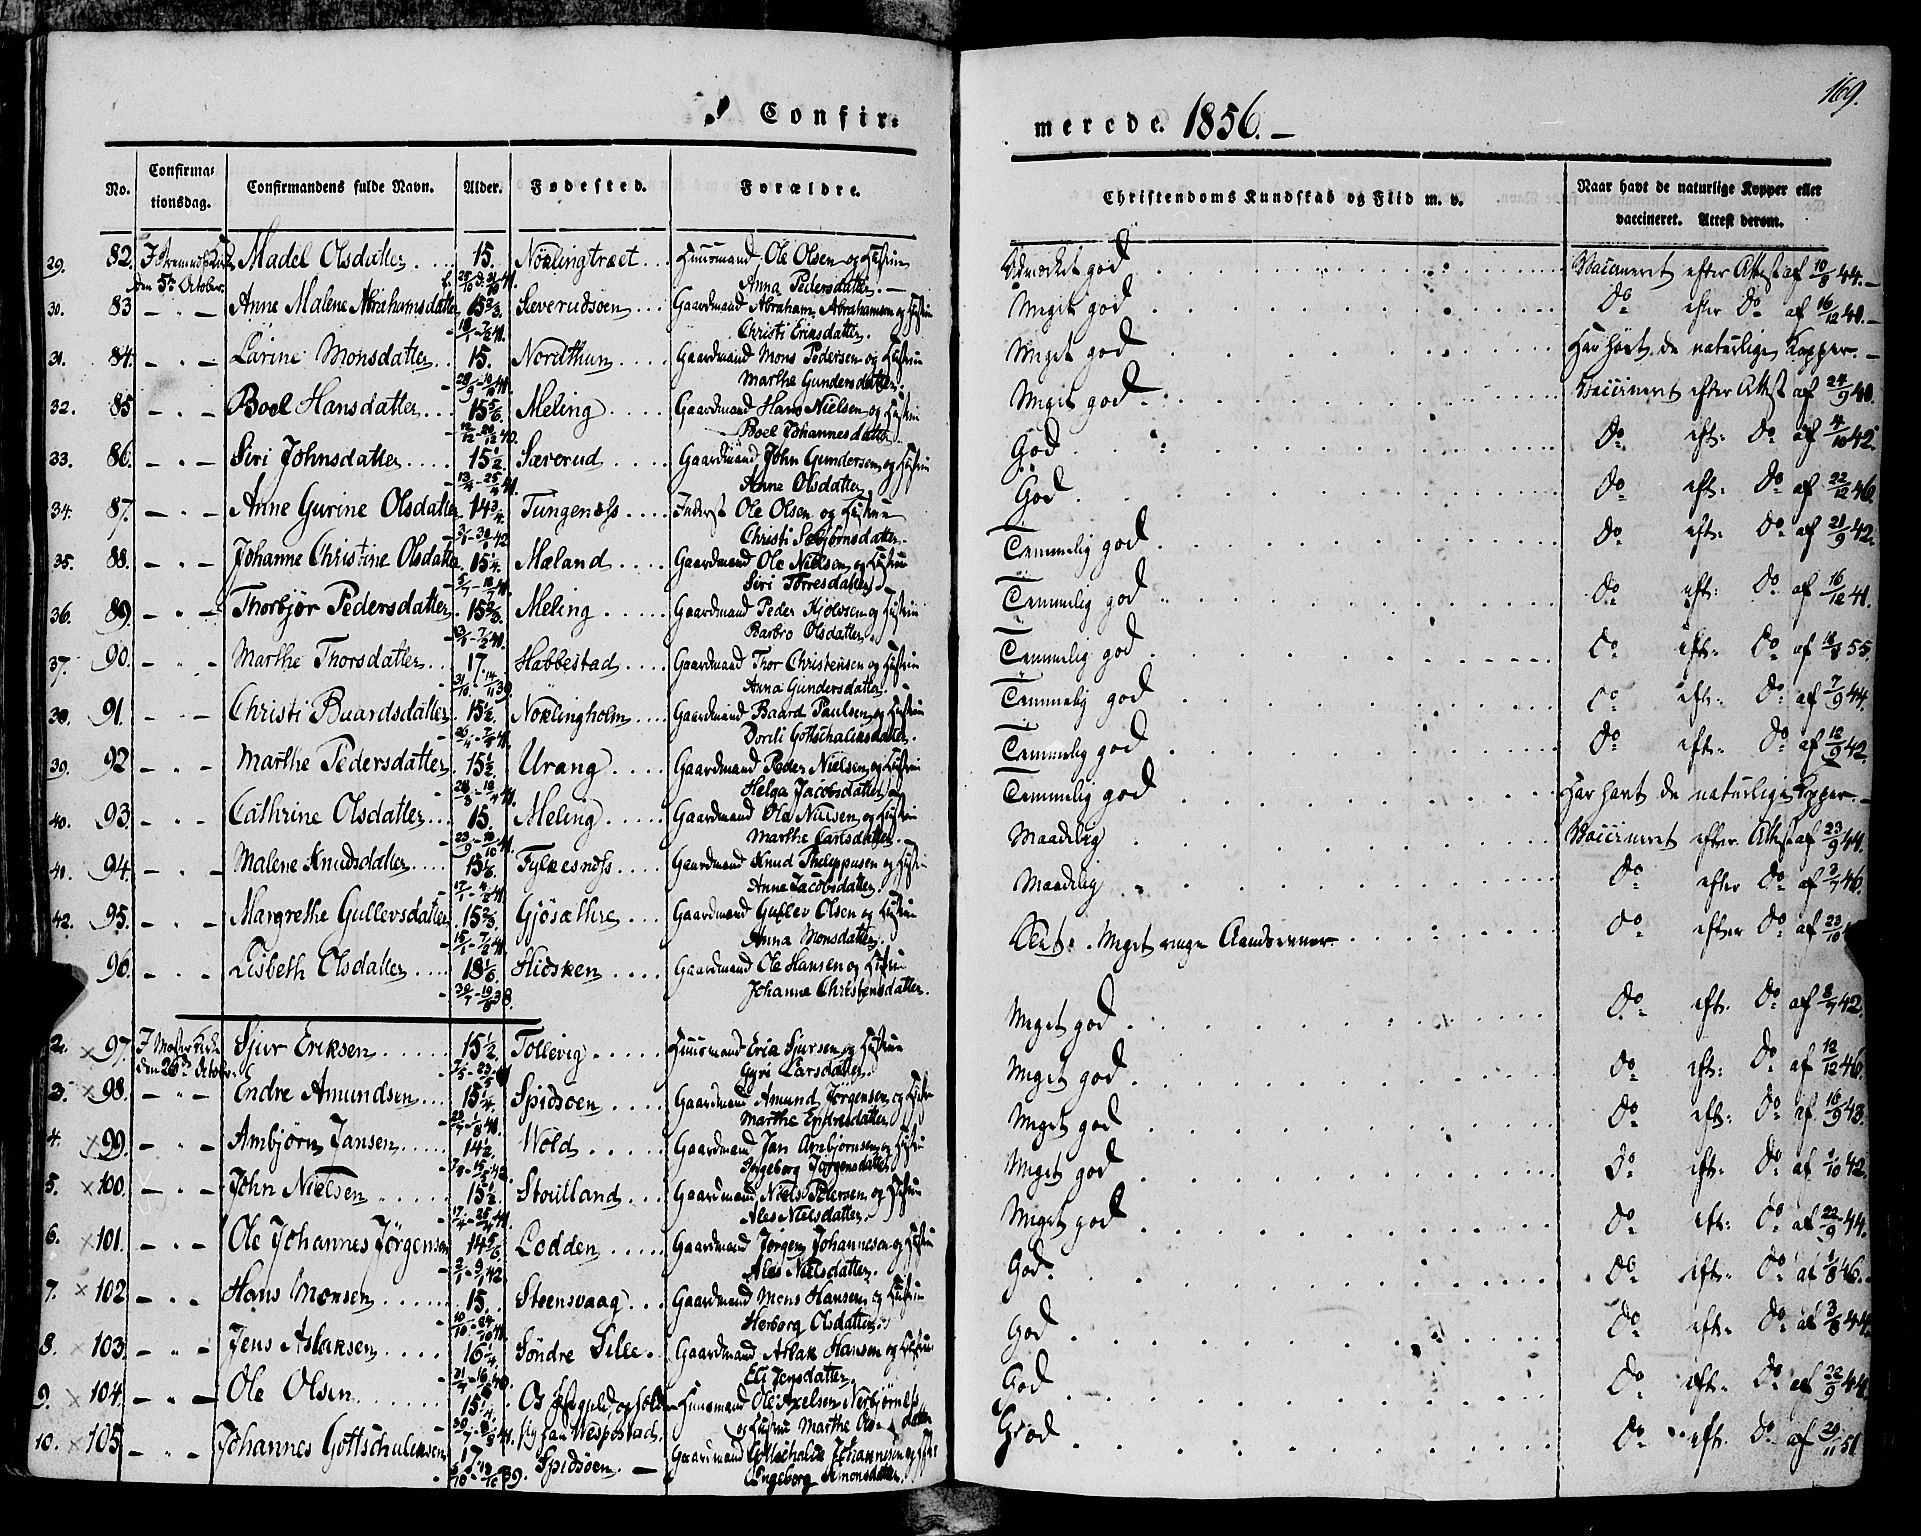 Confir-
merede. 1856.—
169.
No. Confirma-tionsdag. Confirmandens fulde Navn. Alder. Fødested. Forældre. Christendoms Kundskab og Flid m. v. Naar havt de naturlige Kopper eller vaccineret. Attest derom.
29. 82. Madel Olsdatter 15. Nöklingtræet Huusmand Ole Olsen og Hustru Udmærket god Vaccineret efter Attest af 10/8 44.—
den 5te October. Anna Pedersdatter.—
30. 83 — " — Anne Malene Abrahamsdatter 15 2/3. Sæverudsøen Gaardmand Abraham Abrahamsen og Hustru Meget god Do efter Do af 16/12 40.—
Christi Eriksdatter.
31. 84. — " — Larine Monsdatter 15. Nordthun Gaardmand Mons Pedersen og Hustru Meget god Har havt de naturlige Kopper.—
Marthe Gundersdatter.
32. 85 — " — Boel Hansdatter 15 5/6. Meling Gaardmand Hans Nielsen og Hustru Meget god Vaccineret efter Attest af 24/9 40.
Boel Johannesdatter
33. 86. — " — Siri Johnsdatter 15 1/2. Sæverud Gaardmand John Gundersen og Hustru God Do eft: Do af 4/10 42.
Anne Olsdatter.
34. 87. — " — Anne Gurine Olsdatter 14 3/4. Tungenæss Inderst Ole Olsen og Hustru God Do eft: Do af 22/12 46.
Christi Sebjörnsdatter.
35. 88. — " — Johanne Christine Olsdatter 15 1/4. Mæland Gaardmand Ole Nielsen og Hustru Temmelig god Do eft: Do af 21/9 42.
Siri Torresdatter.
36. 89. — " — Thorbjør Pedersdatter 15 2/3. Meling Gaardmand Peder og Hustru Temmelig god Do eft: Do af 16/12 41.
Barbro Olsdatter.
37. 90. — " — Marthe Thorsdatter 17. Habbestad Gaardmand Thor Christensen og Hustru Temmelig god Do eft: Do af 18/8 55.
Anna Gundersdatter.
38. 91. — " — Christi Baardsdatter 15 1/2. Nöklingholm Gaardmand Baard Paulsen og Hustru Temmelig god Do eft: Do af 7/9 44.
Dordi Gottschalksdatter.
39. 92 — " — Marthe Pedersdatter 15 1/2. Urang Gaardmand Peder Nielsen og Hustru Temmelig god Do eft: Do af 12/9 42.
Helga Jacobsdatter
40. 93. — " — Cathrine Olsdatter 15. Meling Gaardmand Ole Nielsen og Hustru Temmelig god Har havt de naturlige Kopper.—
Marthe Carlsdatter.
41. 94. — " — Malene Knudsdatter 15 Fylkesnæss Gaardmand Knud Pheleppusen og Hustru Maadelig Vaccineret efter Attest af 23/9 44.
Anne Jacobsdatter.
42. 95. — " — Margrethe Gullevsdatter 15 2/3. Gjøsæthre Gaardmand Gullev Olsen og Hustru Maadelig Do efter Do af 3/7 46.
Anna Monsdatter.
96. — " — Lisbeth Olsdatter 18 1/6. Hidsken Gaardmand Ole Hansen og Hustru Meget ringe Aandsevner Do efter Do af 23/10
Johanne Christensdatter.
2. × 97. Sjur Eriksen 15 1/2. Tollevig Huusmand Eric Sjursen og Hustru Meget god Do eft. Do af 8/7 42.
den 26de October. Gyri Larsdatter.
3. × 98. — " — Endre Amundsen 15 1/4. Spidsøen Gaardmand Amund Jørgensen og Hustru Meget god Do eft: Do af 12/12 46.
Marthe Endresdatter
4. × 99. — " — Ambjörn Jansen 14 1/2. Wold Gaardmand Jan Ambjørnsen og Hustru Meget god Do eft: Do af 16/9 43.
Ingeborg Jørgensdatter
5. × 100. — " — John Nielsen 15 1/2. Stoulland Gaardmand Niels Pedersen og Hustru Meget god Do eft: Do af 1/10 42.
Ales Nielsdatter.
6. × 101. — " — Ole Johannes Jörgensen 14 5/6 Lodden Gaardmand Jørgen Johannesen og Hustru Meget god Do eft: Do af 22/9 44.
Ales Nielsdatter.
7. × 102 — " — Hans Monsen 15. Steensvaag Gaardmand Mons Hansen og Hustru God Do eft: Do af 1/8 46.
Herborg Olsdatter
8. × 103. — " — Jens Aslaksen 16 1/4. Söndre Lille Gaardmand Aslak Hansen og Hustru God Do eft: Do af 3/8 44
Eli Jensdatter.
9. × 104. — " — Ole Olsen 15 1/4. Huusmand Ole Axelsen God Do eft. Do af 22/9 44
og Hustru Marthe
10. × 105. — " — Johannes Gottschalksen 17 Spidsøen. — Gaardmand Gottschalk Johannesen og God Do eft. Do af 29/11 51
Ingeborg Simonsdatter.